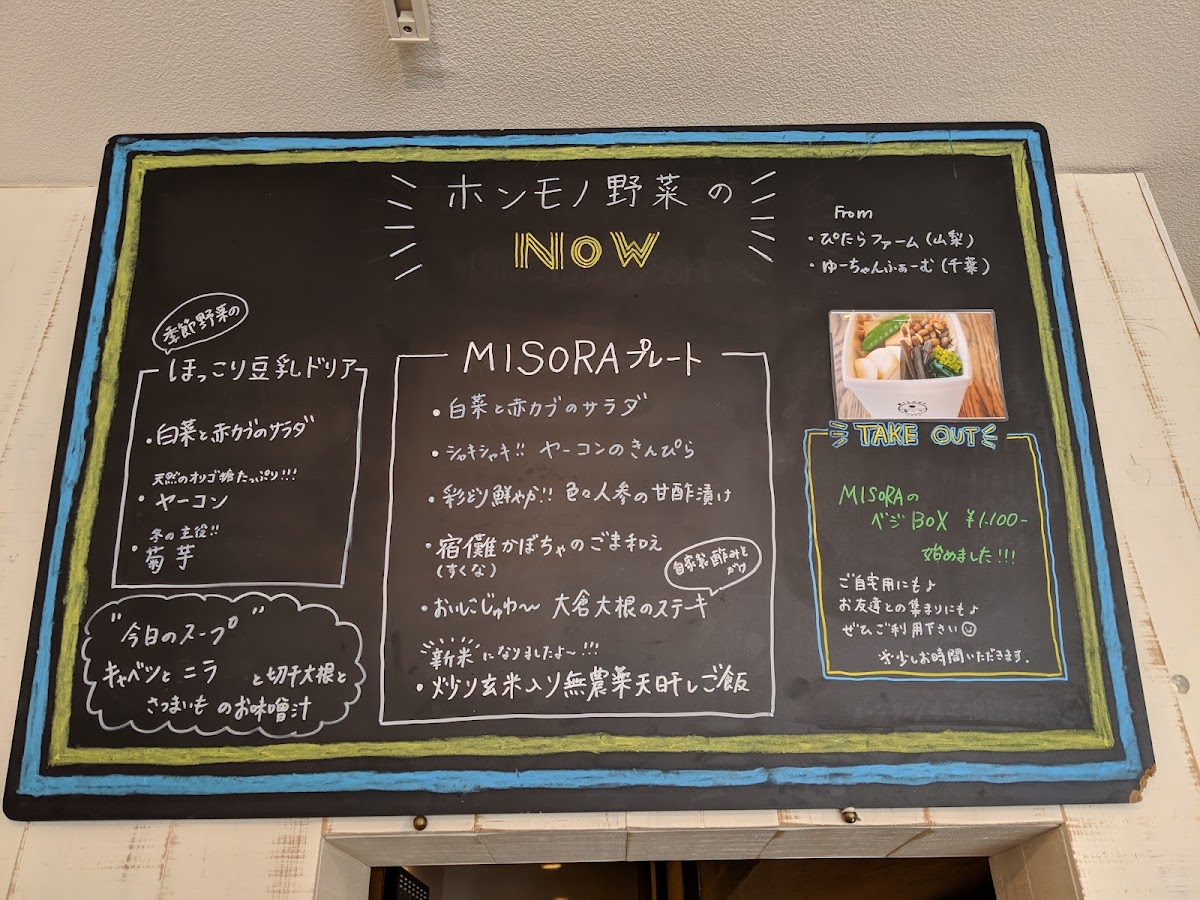 ホンモノ野菜の
NOW
From
・ぴたらファーム(山梨)
・ゆーちゃんふぁーむ(千葉)
季節野菜の
ほっこり豆乳ドリア
・白菜と赤カブのサラダ
天然のオリゴ糖たっぷり!!!
・ヤーコン
冬の主役!!
・菊芋
"今日のスープ"
キャベツとニラ と切干大根と
さつまいも のお味噌汁
MISORAプレート
・白菜と赤カブのサラダ
・シャキシャキ!! ヤーコンのきんぴら
・彩どり鮮やか!! 色々人参の甘酢漬け
・宿儺かぼちゃのごま和え
(すくな)
自家製酢みと
がけ
・おいしこじゅわ〜 大倉大根のステーキ
"新米"になりましたよ〜!!!
・炒り玄米入り無農薬天日干しご飯
TAKE OUT
MISORAの
ベジBOX ¥1.100-
始めました!!!
ご自宅用にもよ
お友達との集まりにもよ
ぜひご利用下さい
※少しお時間いただきます.